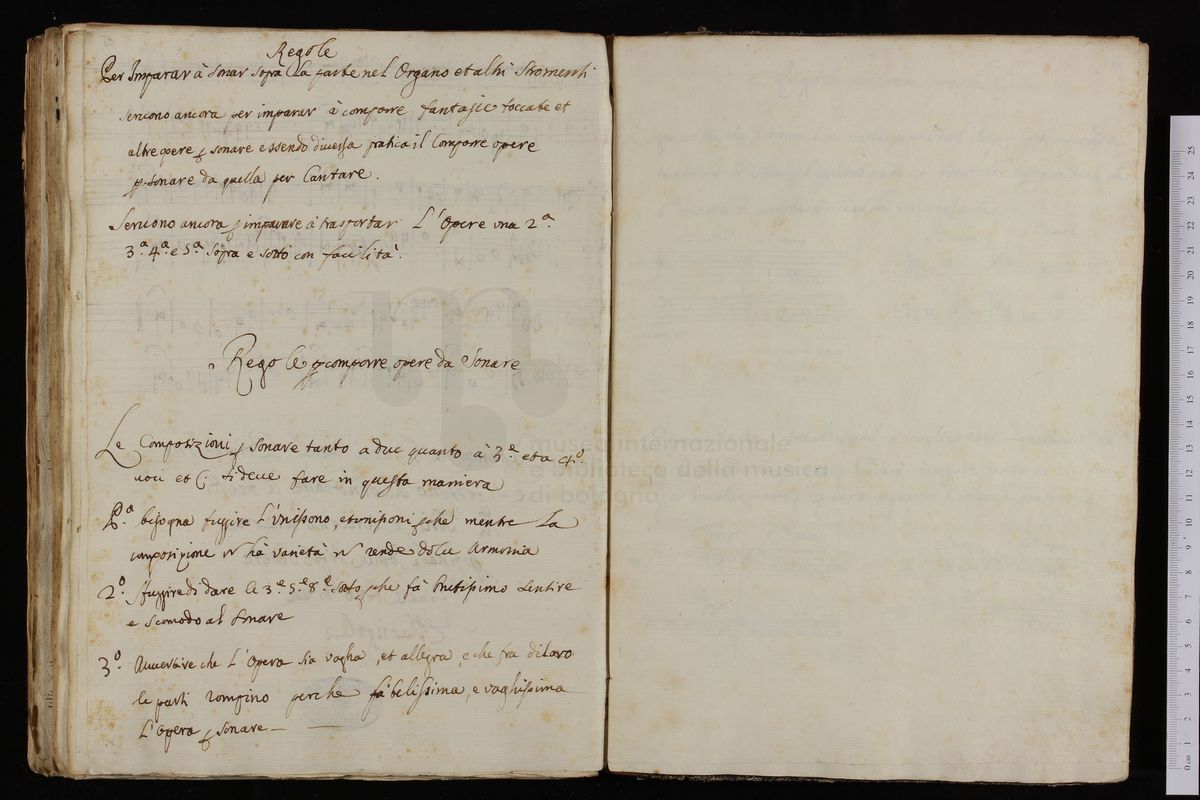 Regole
Per Imparar à sonar sopra la parte nel Organo et altri Stromenti
seruono ancora per imparar à comporre fantasie toccate et
altre opere p sonare essendo diuersa pratica il Comporre opere
p sonare da quella per Cantare.
Seruono ancora p imparare à trasportar L'Opere una 2ª
3ª 4ª e 5ª sopra e sotto con facilità.
Regole p comporre opere da Sonare
Le Composizioni p sonare tanto a due quanto à 3e et a 4º
uoci et C. si deue fare in questa maniera
Pª bisogna fuggire L'Vnissono, et unissoni p che mentre La
composizione N hà varietà N rende dolce Armonia
2º fuggire di dare le 3e 5e 8e sotto p che fà sentire
e scomodo al sonare
3º Auuertire che L'Opera sia vagha, et allegra, e che fra di loro
le parti rompino perche fà belissima, e vaghissima
L'Opera p sonare
museo internazionale
e biblioteca della musica
di bologna
0 cm 1 2 3 4 5 6 7 8 9 10 11 12 13 14 15 16 17 18 19 20 21 22 23 24 25